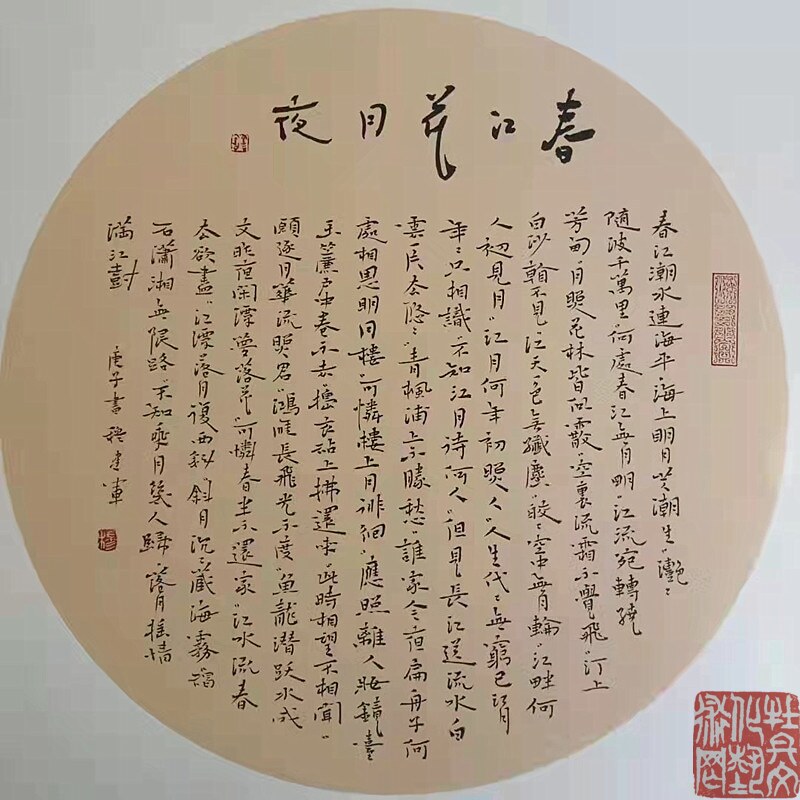 春江花月夜
春江潮水連海平海上明月共潮生灩〻
隨波千萬里何處春江無月明江流宛轉繞
芳甸月照花林皆似霰空裏流霜不覺飛汀上
白沙看不見江天一色無纖塵皎〻空中孤月輪江畔何
人初見月江月何年初照人人生代〻無窮已江月
年〻只相識不知江月待何人但見長江送流水白
雲一片去悠〻青楓浦上不勝愁誰家今夜扁舟子何
處相思明月樓可憐樓上月徘徊應照離人妝鏡臺
玉簾户中卷不去擣衣砧上拂還來此時相望不相聞
願逐月華流照君鴻雁長飛光不度魚龍潛躍水成
文昨夜閒潭夢落花可憐春半不還家江水流春
去欲盡江潭落月復西斜斜月沉〻藏海霧碣
石瀟湘無限路不知乘月幾人歸落月搖情
滿江樹
庚子書